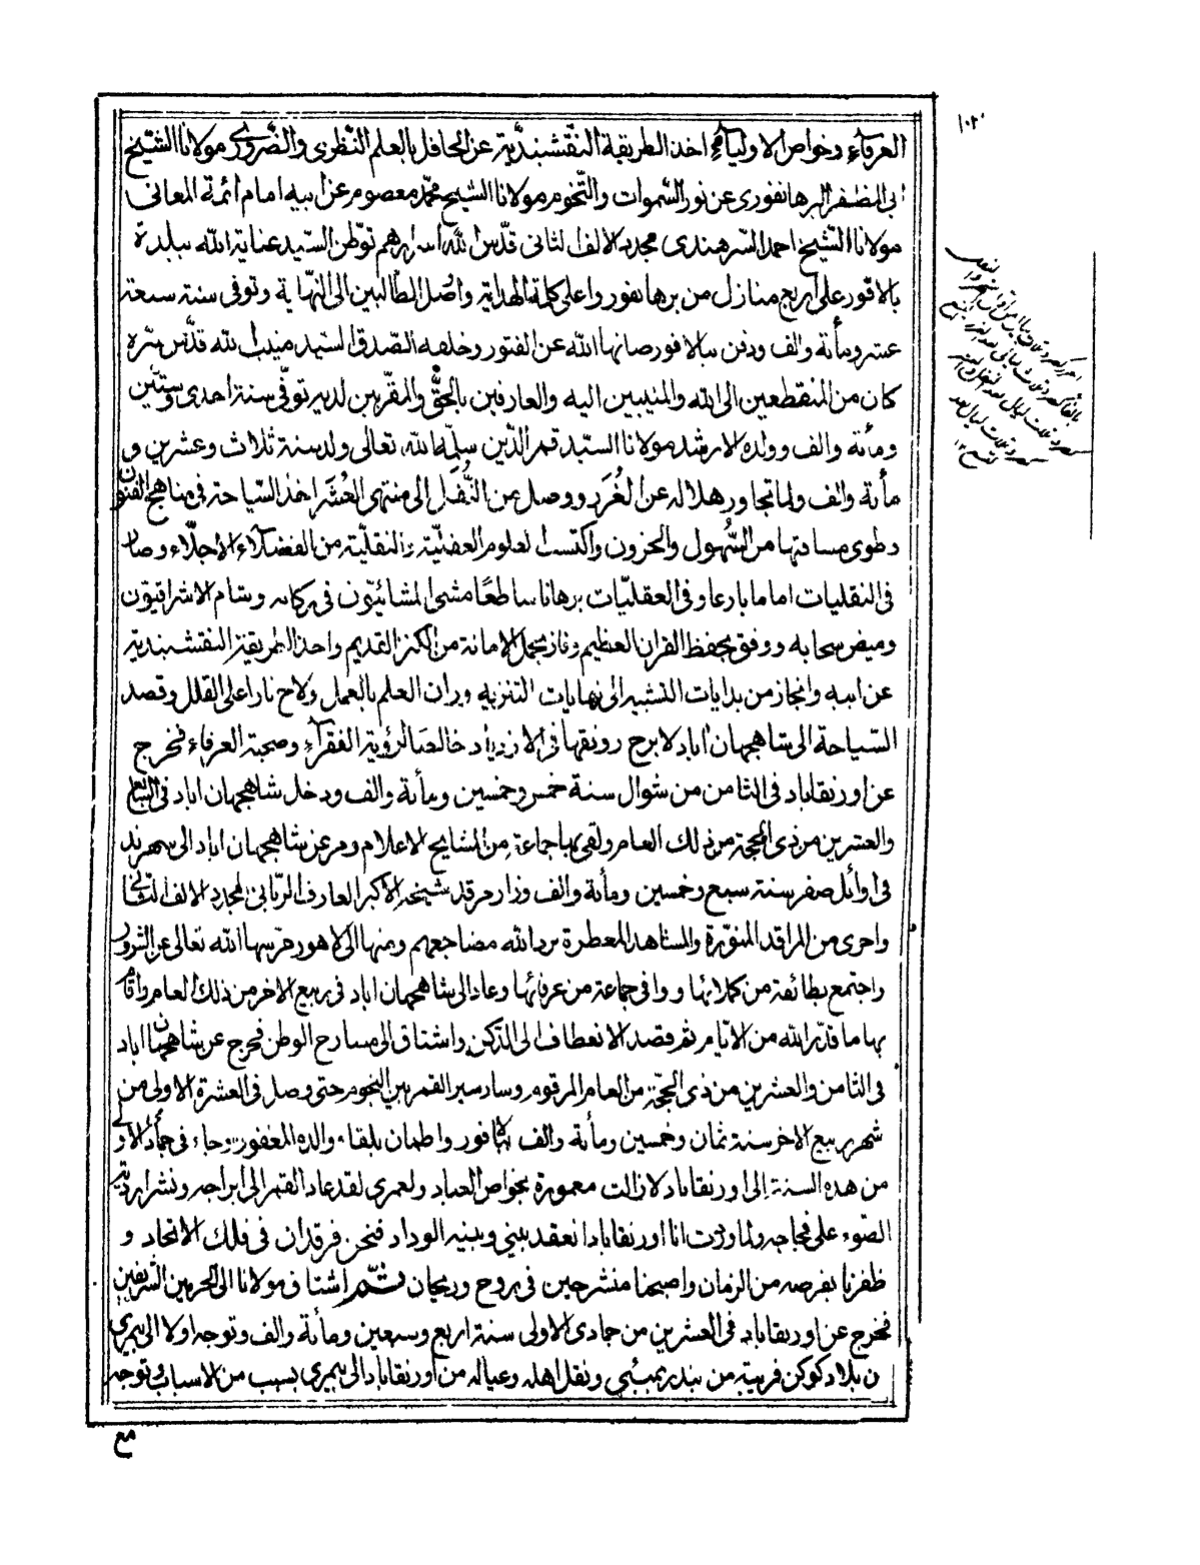 ١٠٢
العرفاء وخواص الاولياء اخذ الطريقة النقشبندية عن الحافل بالعلم النظرى والضرورى مولانا الشيخ
ابى المظفر البرهانفورى عن نور السموات والتخوم مولانا الشيخ محمد معصوم عن ابيه امام ائمة المعانى
مولانا الشيخ احمد السرهندى مجدد الالف الثانى قدس الله اسرارهم توطن السيد عناية الله ببلدة
بالافور على اربع منازل من برهانفور واعلى كلمة الهداية واصل الطالبين الى النهاية وتوفى سنة سبعة
عشر ومأئة والف ودفن ببالافور صانها الله عن الفتور وخلفه الصدق السيد منيب الله قدس سره
كان من المنقطعين الى الله والمنيبين اليه والعارفين بالحق والمقربين لديه توفى سنة احدى وستين
ومأئة والف وولده الارشد مولانا السيد قمر الدين سلمه الله تعالى ولد سنة ثلاث وعشرين و
مأئة والف ولما تجاوز هلاله عن الغرر ووصل من النفل الى منتهى العشر اخذ السياحة فى مناهج الفنون
وطوى مسافتها من السهول والحزون واكتسب العلوم العقلية والنقلية من الفضلاء الاجلاء وصار
فى النقليات اماما بارعا وفى العقليات برهانا ساطعا مشى المشائيون فى ركابه وشام الاشراقيون
وميض سحابه ووفق بحفظ القران العظيم وفاز بحمل الامانة من الكنز القديم واخذ الطريقة النقشبندية
عن ابيه وانحاز من بدايات التشبيه الى نهايات التنزيه وزان العلم بالعمل ولاح نارا على القلل وقصد
السياحة الى شاهجهان اباد لابرح رونقها فى الازدياد خالصا لرؤية الفقراء وصحبة العرفاء فخرج
عن اورنقاباد فى الثامن من شوال سنة خمس وخمسين ومأئة والف ودخل شاهجهان اباد فى السابع
والعشرين من ذى الحجة من ذلك العام ولقى بها جماعة من المشايخ الاعلام ومر عن شاهجهان اباد الى سهرند
فى اوائل صفر سنة سبع وخمسين ومأئة والف وزار مرقد شيخه الاكبر العارف الربانى المجدد للالف الثانى
واخرى من المراقد المنورة والمشاهد المعطرة برد الله مضاجعهم ومنها الى لاهور حرسها الله تعالى عن الشرور
واجتمع بطائفة من كملائها ووافى جماعة من عرفائها وعاد الى شاهجهان اباد فى ربيع الاخر من ذلك العام واقام
بها ما قدر الله من الايام ثم قصد الانعطاف الى الدكن واشتاق الى مسارح الوطن فخرج عن شاهجهان اباد
فى الثامن والعشرين من ذى الحجة من العام المرقوم وسار سير القمر بين النجوم حتى وصل فى العشرة الاولى من
شهر ربيع الاخر سنة ثمان وخمسين ومأئة والف بالافور واطمان بلقاء والده المغفور وجاء فى جمادى الاولى
من هذه السنة الى اورنقاباد لازالت معمورة بخواص العباد ولعمرى لقد عاد القمر الى ابراجه ونشر اردية
الضوء على فجاجه ولما وردت انا اورنقاباد انعقد بينى وبينه الوداد فنحن فرقدان فى فلك الاتحاد و
ظفرنا بفرصة من الزمان واصبحنا منشرحين فى روح وريحان ثم اشتاق مولانا الى الحرمين الشريفين
فخرج عن اورنقاباد فى العشرين من جمادى الاولى سنة اربع وسبعين ومأئة والف وتوجه اولا الى بيمرى
ن بلاد كوكن قريبة من بندر بمبئى ونقل اهله وعياله من اورنقاباد الى بيمرى بسبب من الاسباب توجه
مع